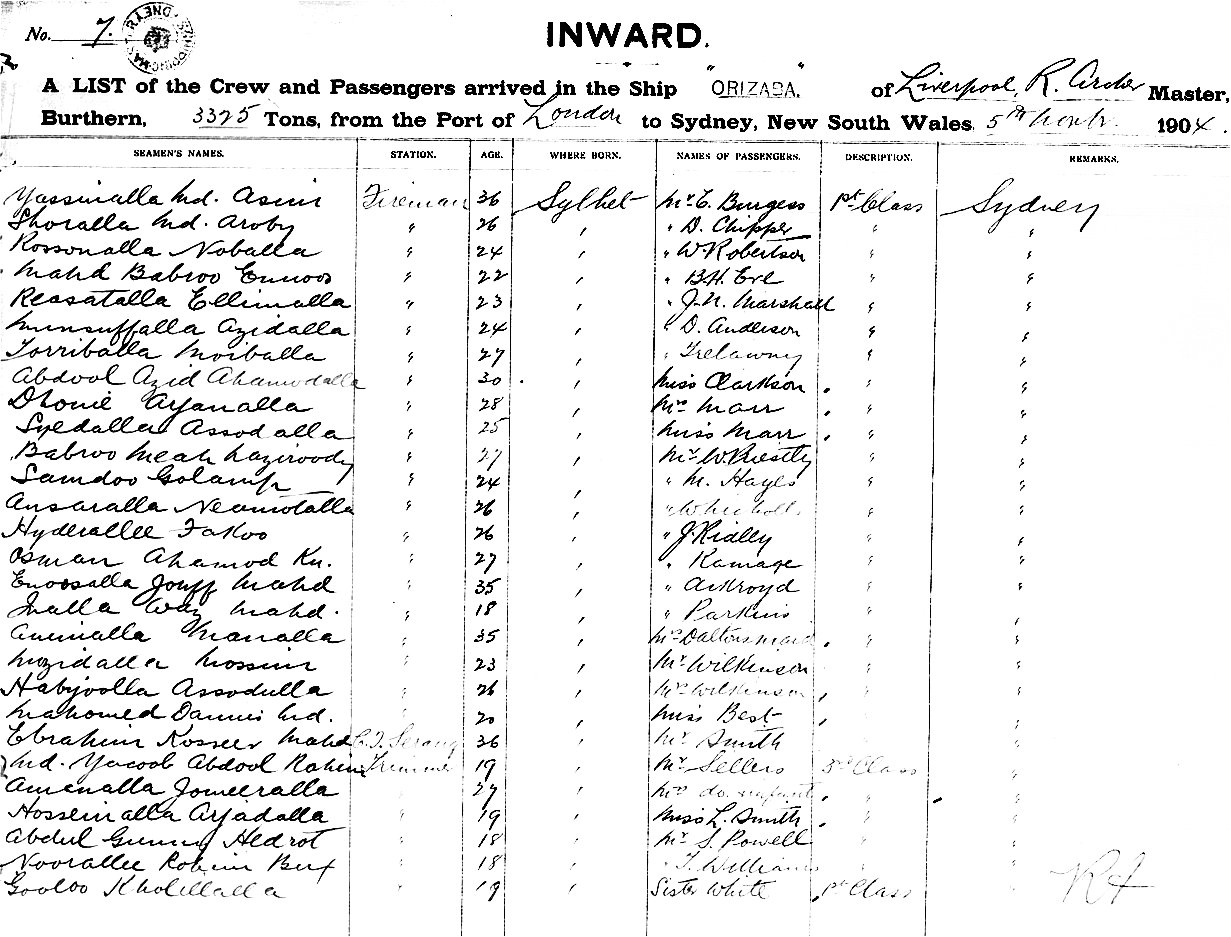 No. 7.
INWARD.
A LIST of the Crew and Passengers arrived in the Ship "ORIZABA." of Liverpool, R. Archer Master,
Burthern, 3325 Tons, from the Port of London to Sydney, New South Wales. 5th 1904.
SEAMEN'S NAMES. STATION. AGE. WHERE BORN. NAMES OF PASSENGERS. DESCRIPTION. REMARKS.
Yassinalla Md. Asim Fireman 36 Sylhet Mr. C. Burgess 1st Class Sydney
Shoralla Md. Aroby " 26 " " D. Chipper " "
Rossonalla Noballa " 24 " " W. Robertson " "
Mahd Babroo Ennoos " 22 " " B.H. Eve " "
Reasatalla Ellimalla " 23 " " J.N. Marshall " "
Munsuffalla Azidalla " 24 " " D. Anderson " "
Torriballa Moiballa " 27 " " Trelawny " "
Abdool Azid Ahamodalla " 30 " Miss Clarkson " "
Dhonie Ayanalla " 28 " Mrs Marr " "
Syedalla Assodalla " 25 " Miss Marr " "
Babroo Meah Laziroody " 27 " Mr. W. Priestly " "
Samdoo " 24 " " M. Hayes " "
Ansaralla Neamotalla " 26 " " " "
Hyderallee Fakoo " 26 " " J. Ridley " "
Osman Ahamod Kn. " 27 " " Ramage " "
Enoosalla Jouff Mahd " 35 " " Ackroyd " "
Mahd. " 18 " " Parkins " "
Manalla " 35 " Mrs Daltons maid " "
Mozidalla Mossim " 23 " Mr. Wilkinson " "
Habjoolla Assodulla " 26 " Mrs Wilkinson " "
Mahomed Dannis Md. " 20 " Miss Best " "
Ebrahim Kosseer Mahd C.T. Serang 36 " Mr Smith " "
Md. Yacoob Abdool Rohim Trimmer 19 " Mr Sellers 3rd Class "
Amenalla Jomeeralla " 27 " Mrs do. infant " "
Hosseinalla Arjadalla " 19 " Miss L. Smith " "
Abdul Gunny Hedrot " 18 " Mr S. Powell " "
Noorallee Rohim Bux " 18 " " T. Williams " "
Gooloo Kholillalla " 19 " Sister White 1st Class "